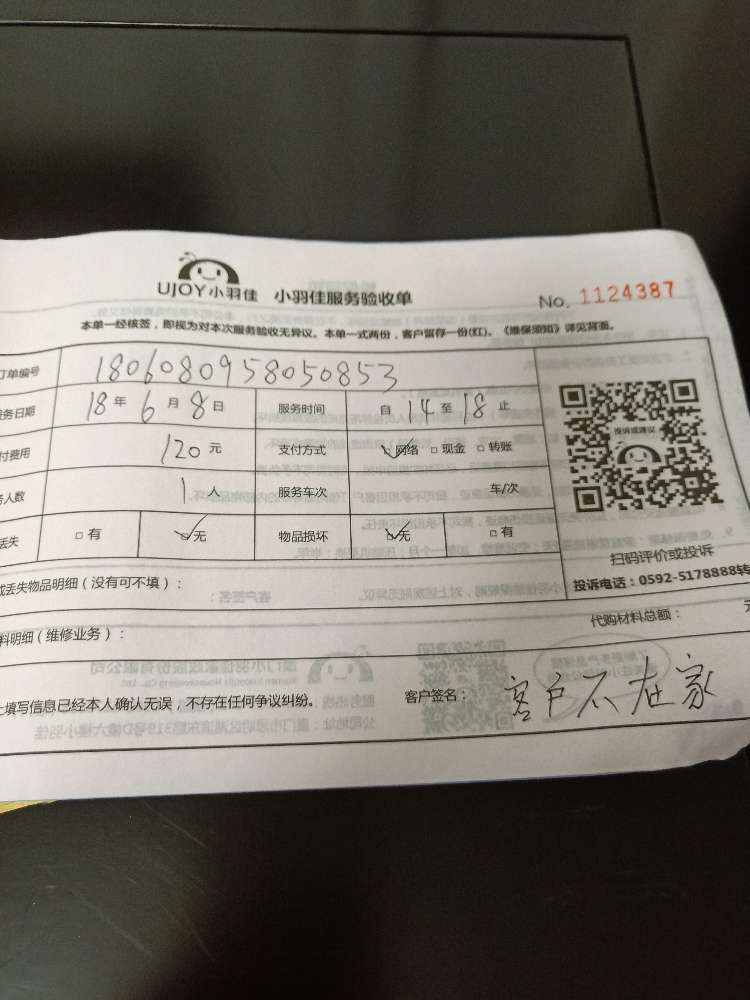 UJOY小羽佳 小羽佳服务验收单 No. 1124387
本单一经核签，即视为对本次服务验收无异议。本单一式两份，客户留存一份(红)。《维保须知》详见背面。
订单编号 1806080958050853
务日期 18 年 6 月 8 日 服务时间 自 14 至 18 止
付费用 120 元 支付方式 ☑网络 □现金 □转账
务人数 1 人 服务车次 车/次
丢失 □有 ☑无 物品损坏 ☑无 □有
投诉或建议
扫码评价或投诉
投诉电话：0592-5178888转
或丢失物品明细（没有可不填）：
料明细（维修业务）： 代购材料总额：
上填写信息已经本人确认无误，不存在任何争议纠纷。 客户签名： 客户不在家